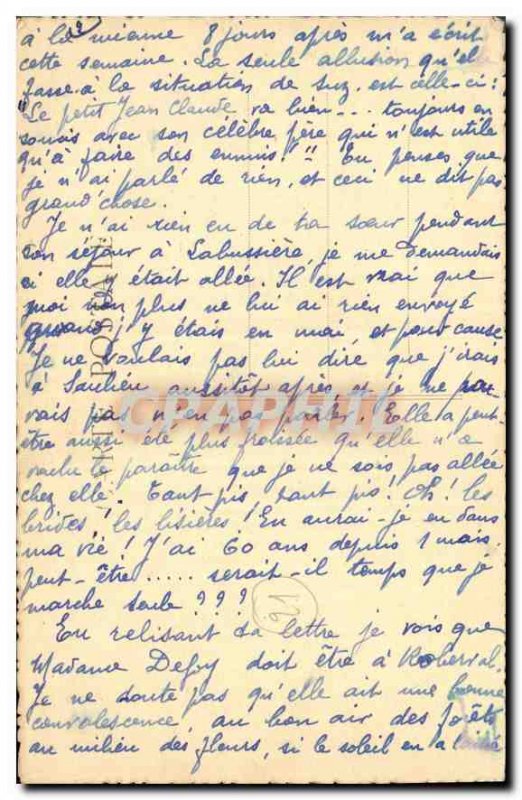 à la mienne 8 jours après m'a écrit
cette semaine. La seule allusion qu'elle
fasse à la situation de Suz. est celle-ci:
"Le petit Jean Claude va bien... toujours en
soucis avec son célèbre père qui n'est utile
qu'à faire des ennuis!" Tu penses que
je n'ai parlé de rien, et ceci ne dit pas
grand'chose.
Je n'ai rien eu de ta sœur pendant
son séjour à Labussière, je me demandais
si elle y était allée. Il est vrai que
moi non plus ne lui ai rien envoyé
quand j'y étais en mai, et pour cause
Je ne voulais pas lui dire que j'irais
à Saulieu aussitôt après et je ne pou-
vais pas n'en pas parler. Elle a peut-
être aussi été plus froissée qu'elle n'a
voulu le paraître que je ne sois pas allée
chez elle. Tant pis, tant pis! Oh! les
brides! les lisières! En aurai-je eu dans
ma vie! J'ai 60 ans depuis 1 mois.
peut-être..... serait-il temps que je
marche seule???
21
En relisant ta lettre je vois que
Madame Defoy doit être à Roberval.
Je ne doute pas qu'elle ait une bonne
convalescence, au bon air des forêts
au milieu des fleurs, si le soleil en a
CARTE POSTALE
CARTE GRAPHIC